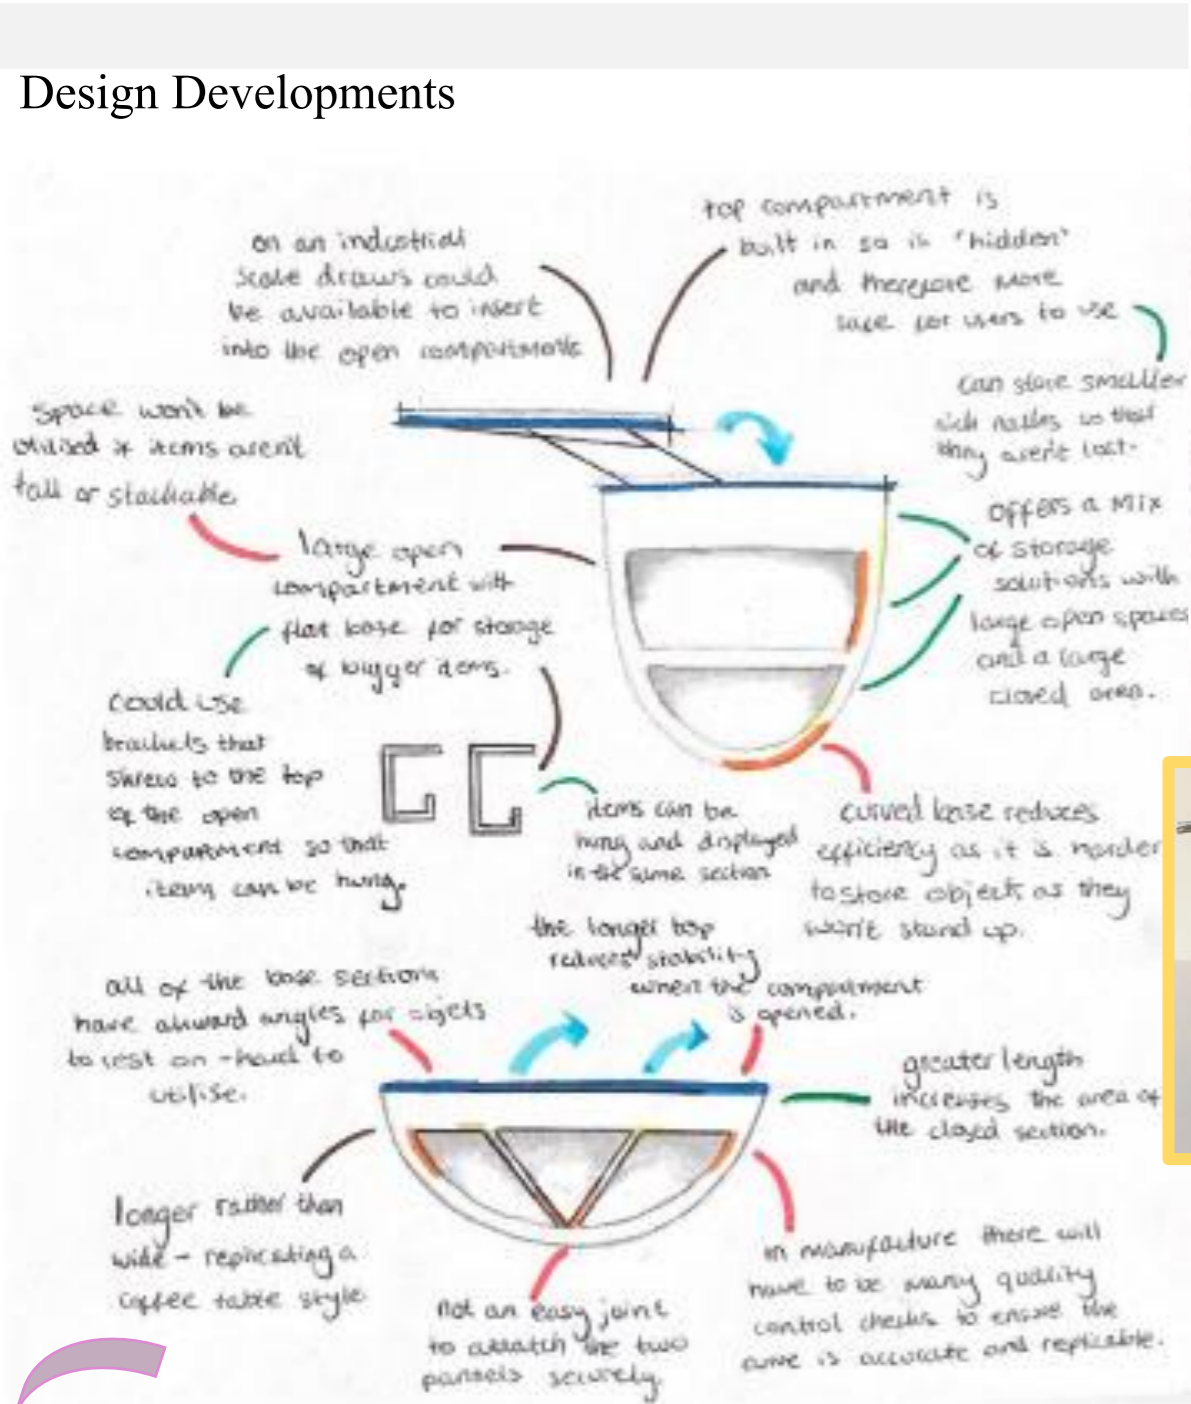 Design Developments
on an industrial
scale draws could
be available to insert
into the open compartments
top compartment is
built in so is 'hidden'
and therefore more
safe for users to use
can store smaller
so that
they aren't lost.
space won't be
utilised if items aren't
tall or stackable
large open
compartment with
flat base for storage
of bigger items.
offers a mix
of storage
solutions with
large open spaces
and a large
closed area.
could use
brackets that
screw to the top
of the open
compartment so that
items can be hung.
items can be
hung and displayed
in the same section
curved base reduces
efficiency as it is harder
to store objects as they
won't stand up.
the longer top
reduces stability
when the compartment
is opened.
all of the base sections
have akward angles for objets
to rest on - hard to
utilise.
greater length
increases the area of
the closed section.
longer rather than
wide - replicating a
coffee table style
not an easy joint
to attatch the two
pannels securely.
in manufacture there will
have to be many quality
control checks to ensure the
curve is accurate and replicable.